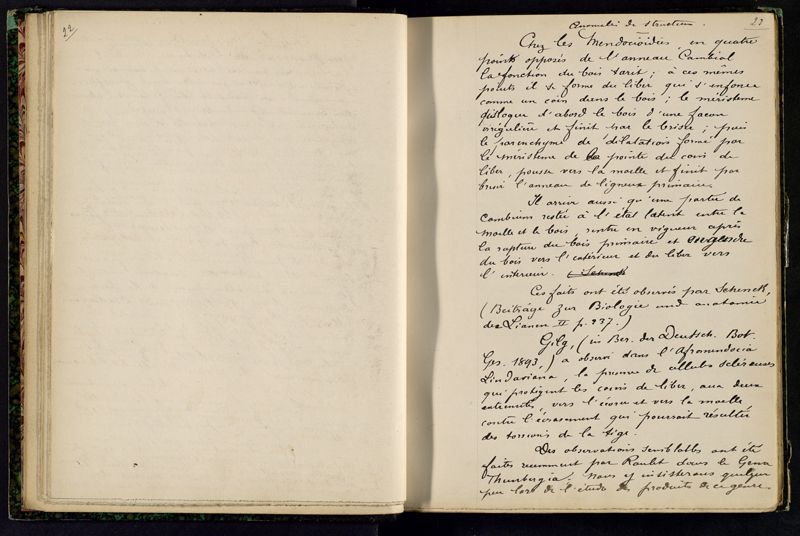 22
23
Anomalie de structure.
Chez les Mendocioïdiés, en quatre
points opposés de l'anneau Cambial
la fonction du bois tarit ; à ces mêmes
points il se forme du liber qui s'enfonce
comme un coin dans le bois ; le méristème
disloque d'abord le bois d'une façon
irrégulière et finit par le briser ; puis
le parenchyme de dilatation formé par
le méristème de la pointe du coin de
liber, pousse vers la moelle et finit par
briser l'anneau de ligneux primaire.
Il arrive aussi qu'une partie de
Cambium restée à l'état latent entre la
moelle et le bois, rentre en vigueur après
la rupture du bois primaire et engendre
du bois vers l'extérieur et du liber vers
l'intérieur. (Schenck
Ces faits ont été observés par Schenck,
(Beiträge zur Biologie und anatomie
der Lianen II p. 237.)
Gilg, (in Ber. der Deutsch. Bot.
Ges. 1893,) a observé dans l'Afromendocia
Lindaviana, la présence de cellules scléreuses
qui protègent les coins de liber, aux deux
extrémités, vers l'écorce et vers la moelle
contre l'écrasement qui pourrait résulter
des torsions de la tige.
Des observations semblables ont été
faites récemment par Roulet dans le Genre
Thunbergia. Nous y insisterons quelque
peu lors de l'étude des produits de ce genre.